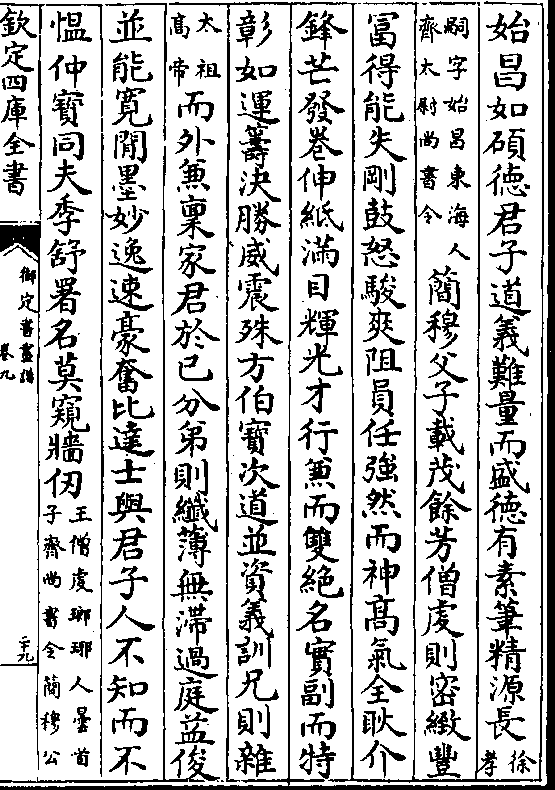 始昌如碩德君子道義難量而盛德有素筆精源長徐孝
嗣字始昌東海人齊太尉尚書令簡穆父子載茂餘芳僧虔則密緻豐
富得能失剛鼓怒駿爽阻員任強然而神高氣全耿介
鋒芒發卷伸紙滿目輝光才行兼而雙絕名實副而特
彰如運籌決勝威震殊方伯寶次道並資義訓兄則雜
太祖高帝而外兼稟家君於已分弟則纖薄無滯過庭益俊
並能寬閒墨妙逸速豪奮比達士與君子人不知而不
慍仲寶同夫季舒署名莫窺牆仞王僧虔瑯琊人曇首子齊尚書令簡穆公
欽定四庫全書
御定書畫譜
卷九
二十九